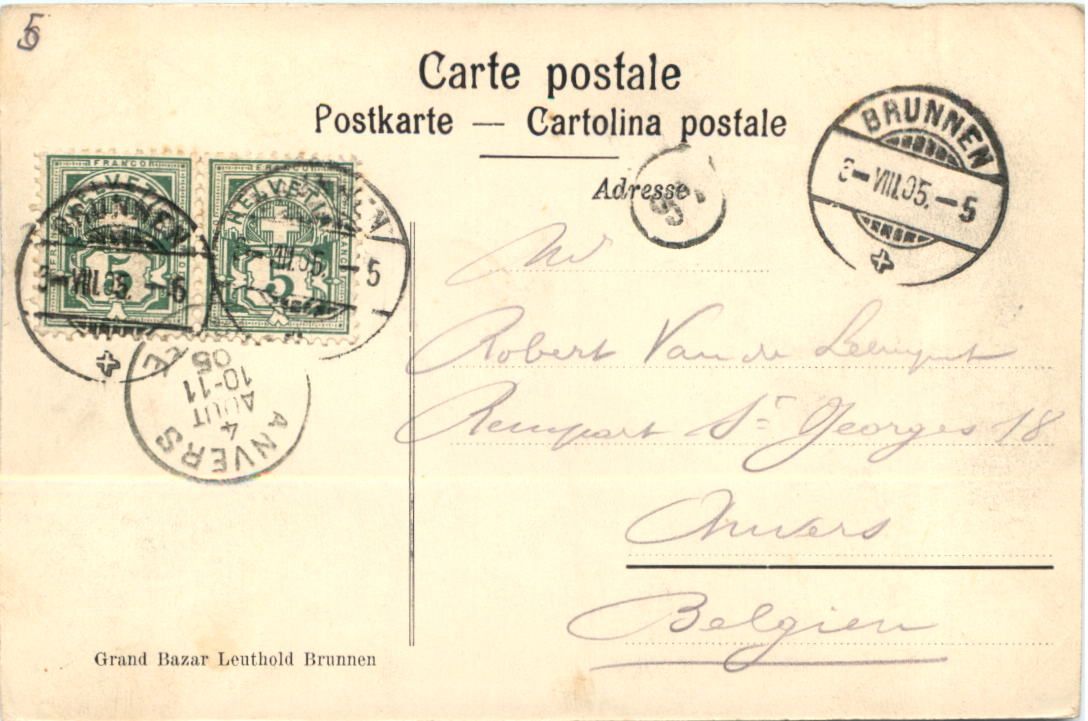 Carte postale
Postkarte — Cartolina postale
Adresse
BRUNNEN
3-VIII.05.-5
FRANCO
HELVETIA
5
FRANCO
HELVETIA
5
BRUNNEN
3-VIII.05.-6
3-VIII.05.-5
ANVERS
4
AOUT
10-11
05
Robert Van de
Rempart St Georges 18
Anvers
Belgien
Grand Bazar Leuthold Brunnen